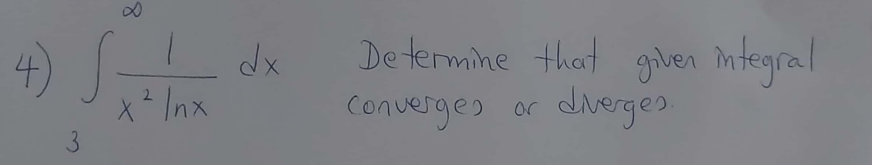 4) ∫₃^∞ 1/(x² lnx) dx Determine that given integral
converges or diverges.